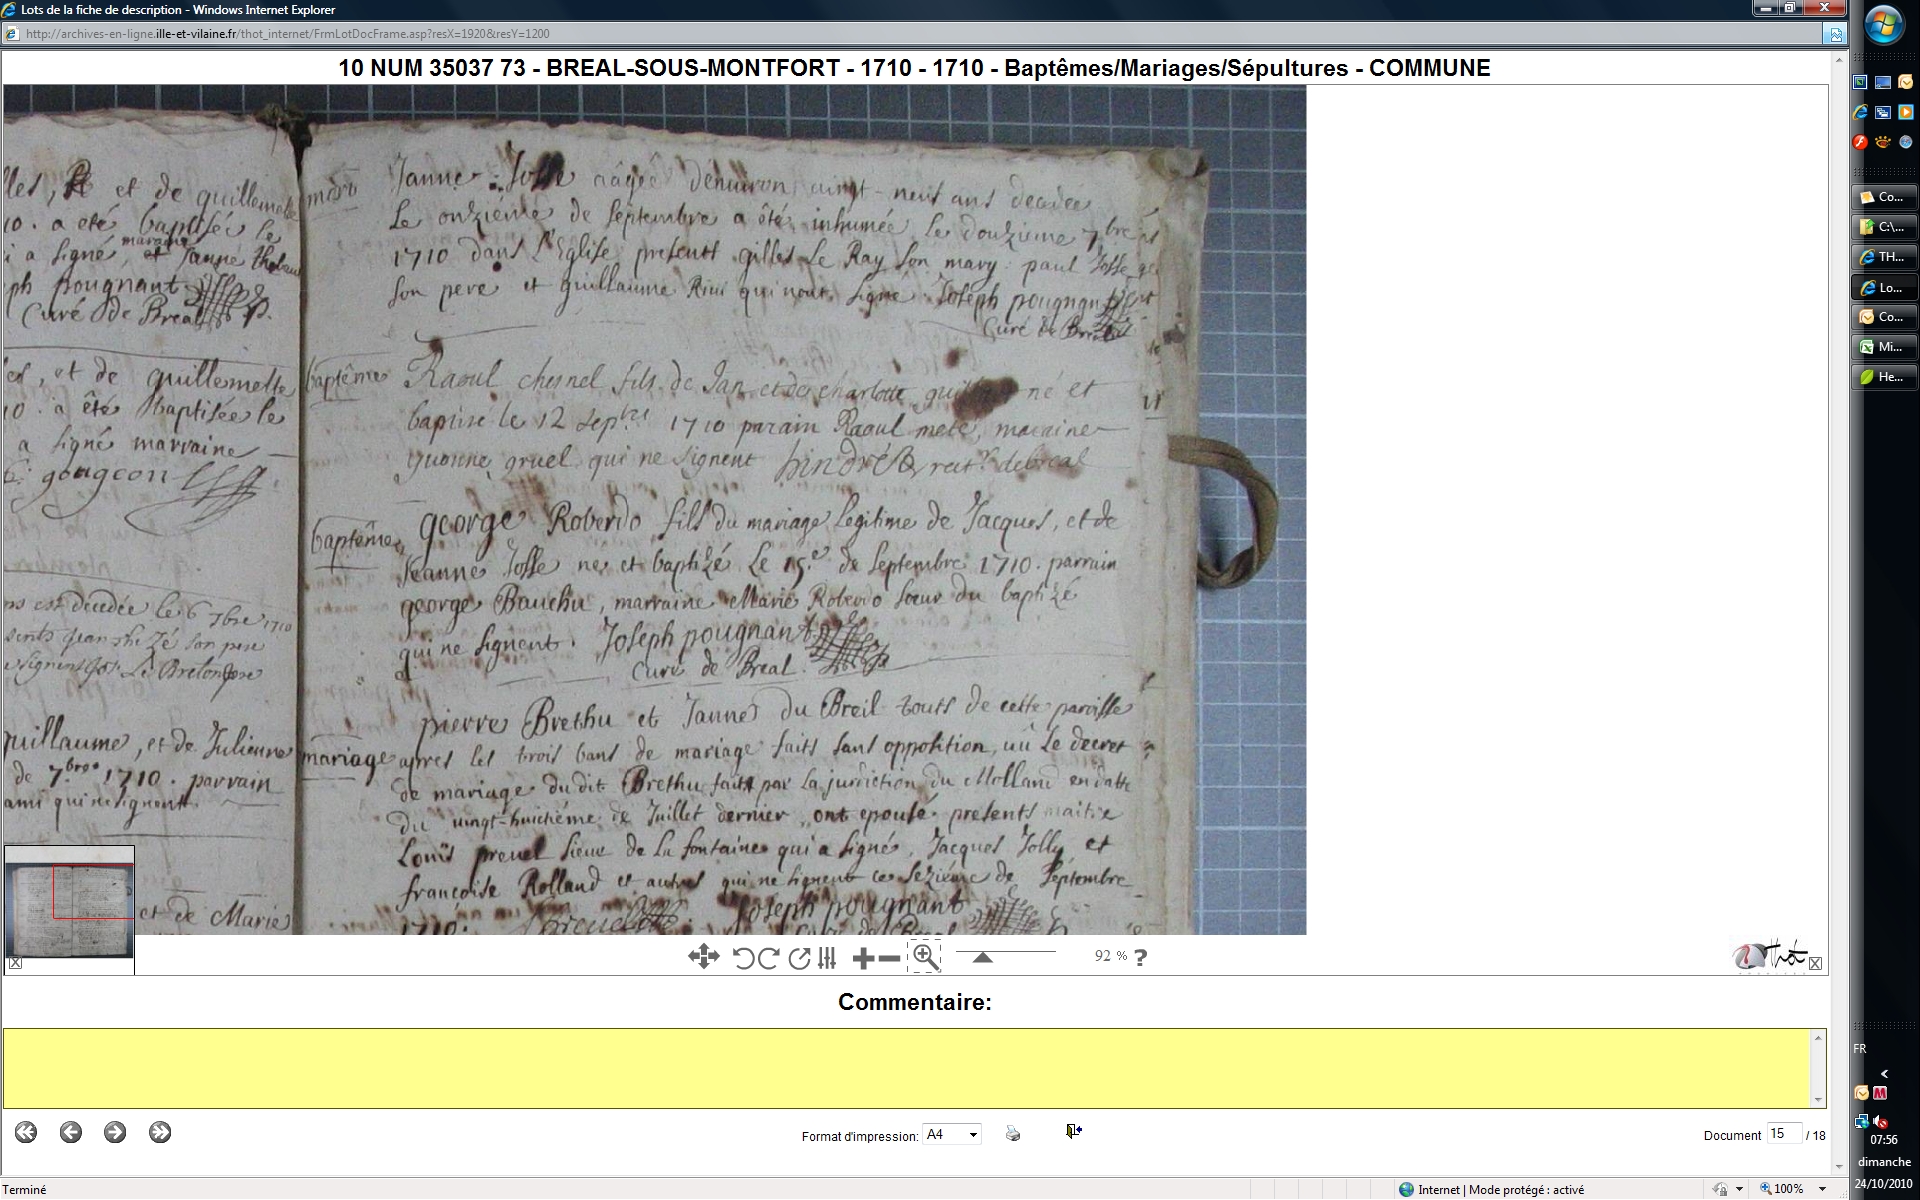 Lots de la fiche de description - Windows Internet Explorer
http://archives-en-ligne.ille-et-vilaine.fr/thot_internet/FrmLotDocFrame.asp?resX=1920&resY=1200
10 NUM 35037 73 - BREAL-SOUS-MONTFORT - 1710 - 1710 - Baptêmes/Mariages/Sépultures - COMMUNE
et de guillemette
10. a eté baptisée le
a signé, et Janne
marainne
ph pougnant
Curé de Breal
et de guillemette
10. a êté baptisée le
a signé marraine
gougeon
est decedée le 6 7bre 1710
son pere
guillaume, et de Julienne
de 7bre 1710. parrain
ami qui ne signent
et de Marie
mort
Janne Josse aâgée d'enuiron uingt-neuf ans decedée
Le onziéme de septembre a êté inhumée le douziéme 7bre
1710 dans l'Eglise presents gilles Le Ray son mary paul Josse
son pere et guillaume Riui qui n'ont signé. Joseph pougnant
Curé de Breal
baptême
Raoul chesnel fils de Jan et de charlotte né et
baptisé le 12 septbre 1710 parain Raoul meté, maraine
yuonne gruel qui ne signent hindré rectr de breal
baptême
george Roberdo fils du mariage legitime de Jacques, et de
Jeanne Josse né et baptizé Le 15e de septembre 1710. parrain
george Bauchu, marraine Marie Roberdo soeur du baptizé
qui ne signent. Joseph pougnant
Curé de Breal.
mariage
pierre Brethu et Janne du Breil touts de cette paroisse
apres les trois bans de mariage faits sans opposition, uû Le decret
de mariage du dit Brethu fait par La juridiction du Molland en datte
du uingt-huictiéme de Juillet dernier, ont epousé presents maitre
Louïs preuel sieur de La fontaine qui a signé, Jacques Jolly et
françoise Rolland et autres qui ne signent ce seziéme de septembre
1710. Joseph pougnant
92 %
?
Thot
Commentaire:
Format d'impression: A4
Document 15 / 18
Terminé
Internet | Mode protégé : activé
100%
Co...
C:\...
TH...
Lo...
Co...
Mi...
He...
FR
07:56
dimanche
24/10/2010